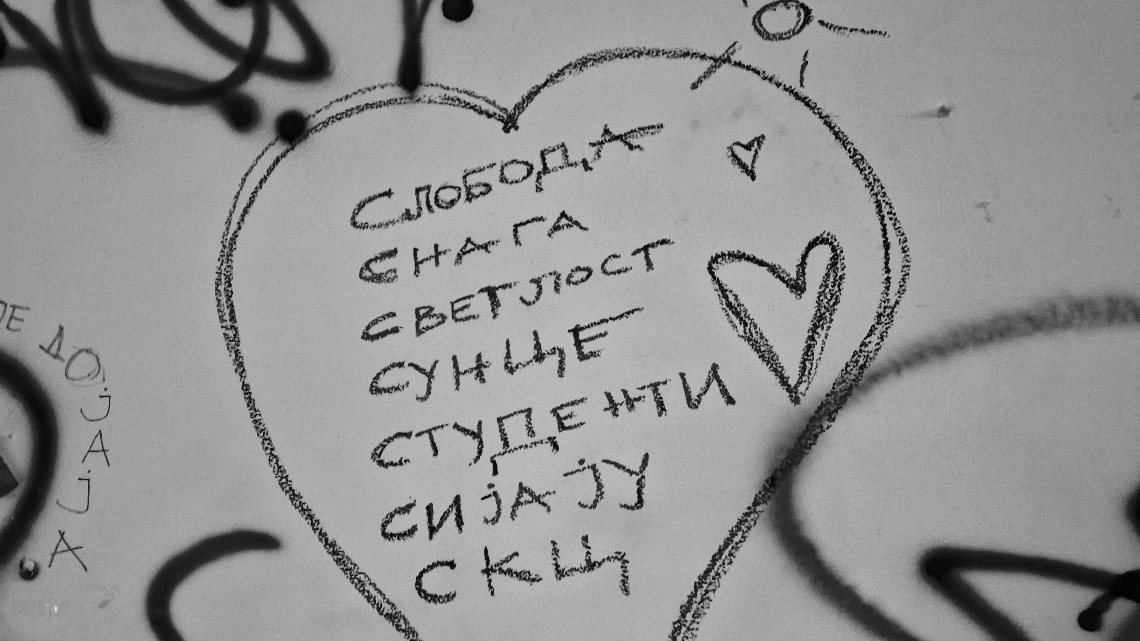 СЛОБОДА
СНАГА
СВЕТЛОСТ
СУНЦЕ
СТУДЕНТИ
СИЈАЈУ
СКЦ
ЈЕ ДОЈАЈА